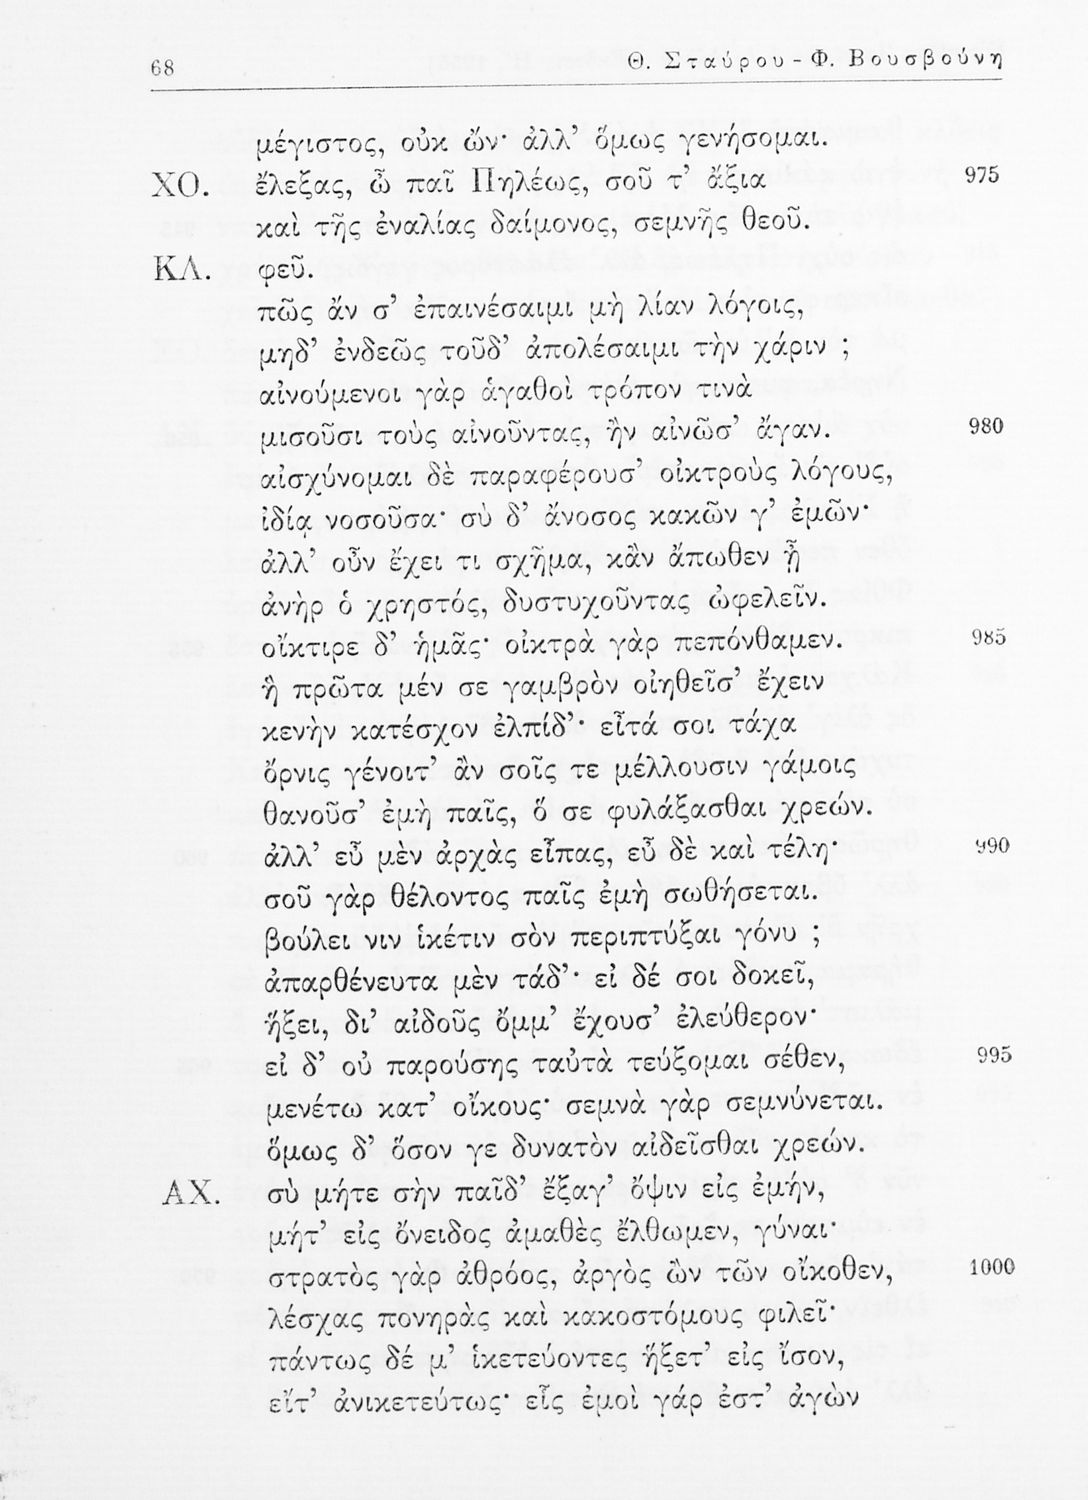 68 Θ. Σταύρου - Φ. Βουσβούνη
μέγιστος, οὐκ ὤν· ἀλλ' ὅμως γενήσομαι.
ΧΟ. ἔλεξας, ὦ παῖ Πηλέως, σοῦ τ' ἄξια 975
καὶ τῆς ἐναλίας δαίμονος, σεμνῆς θεοῦ.
ΚΛ. φεῦ.
πῶς ἄν σ' ἐπαινέσαιμι μὴ λίαν λόγοις,
μηδ' ἐνδεῶς τοῦδ' ἀπολέσαιμι τὴν χάριν ;
αἰνούμενοι γὰρ ἁγαθοὶ τρόπον τινὰ
μισοῦσι τοὺς αἰνοῦντας, ἢν αἰνῶσ' ἄγαν. 980
αἰσχύνομαι δὲ παραφέρουσ' οἰκτροὺς λόγους,
ἰδίᾳ νοσοῦσα· σὺ δ' ἄνοσος κακῶν γ' ἐμῶν·
ἀλλ' οὖν ἔχει τι σχῆμα, κἂν ἄπωθεν ᾖ
ἀνὴρ ὁ χρηστός, δυστυχοῦντας ὠφελεῖν.
οἴκτιρε δ' ἡμᾶς· οἰκτρὰ γὰρ πεπόνθαμεν. 985
ἣ πρῶτα μέν σε γαμβρὸν οἰηθεῖσ' ἔχειν
κενὴν κατέσχον ἐλπίδ'· εἶτά σοι τάχα
ὄρνις γένοιτ' ἂν σοῖς τε μέλλουσιν γάμοις
θανοῦσ' ἐμὴ παῖς, ὅ σε φυλάξασθαι χρεών.
ἀλλ' εὖ μὲν ἀρχὰς εἶπας, εὖ δὲ καὶ τέλη· 990
σοῦ γὰρ θέλοντος παῖς ἐμὴ σωθήσεται.
βούλει νιν ἱκέτιν σὸν περιπτύξαι γόνυ ;
ἀπαρθένευτα μὲν τάδ'· εἰ δέ σοι δοκεῖ,
ἥξει, δι' αἰδοῦς ὄμμ' ἔχουσ' ἐλεύθερον·
εἰ δ' οὐ παρούσης ταὐτὰ τεύξομαι σέθεν, 995
μενέτω κατ' οἴκους· σεμνὰ γὰρ σεμνύνεται.
ὅμως δ' ὅσον γε δυνατὸν αἰδεῖσθαι χρεών.
ΑΧ. σὺ μήτε σὴν παῖδ' ἔξαγ' ὄψιν εἰς ἐμήν,
μήτ' εἰς ὄνειδος ἀμαθὲς ἔλθωμεν, γύναι·
στρατὸς γὰρ ἀθρόος, ἀργὸς ὢν τῶν οἴκοθεν, 1000
λέσχας πονηρὰς καὶ κακοστόμους φιλεῖ·
πάντως δέ μ' ἱκετεύοντες ἥξετ' εἰς ἴσον,
εἴτ' ἀνικετεύτως· εἷς ἐμοὶ γάρ ἐστ' ἀγὼν